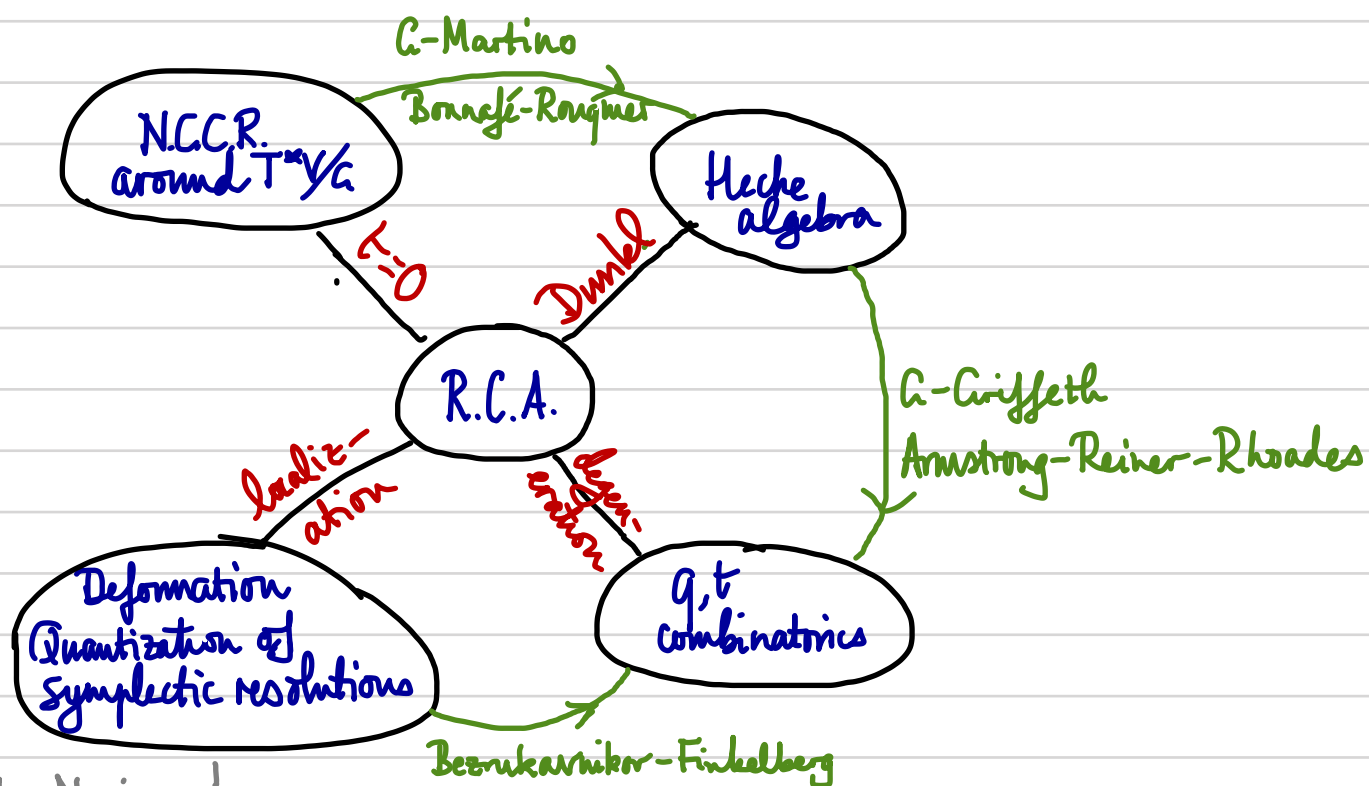 G-Martino
Bonnafé-Rouquier
N.C.C.R.
around T*V/G
Hecke
algebra
T=0
Dunkl
R.C.A.
G-Griffeth
Armstrong-Reiner-Rhoades
localiz-
ation
degen-
eration
Deformation
Quantization of
symplectic resolutions
q,t
combinatorics
Bezrukavnikov-Finkelberg